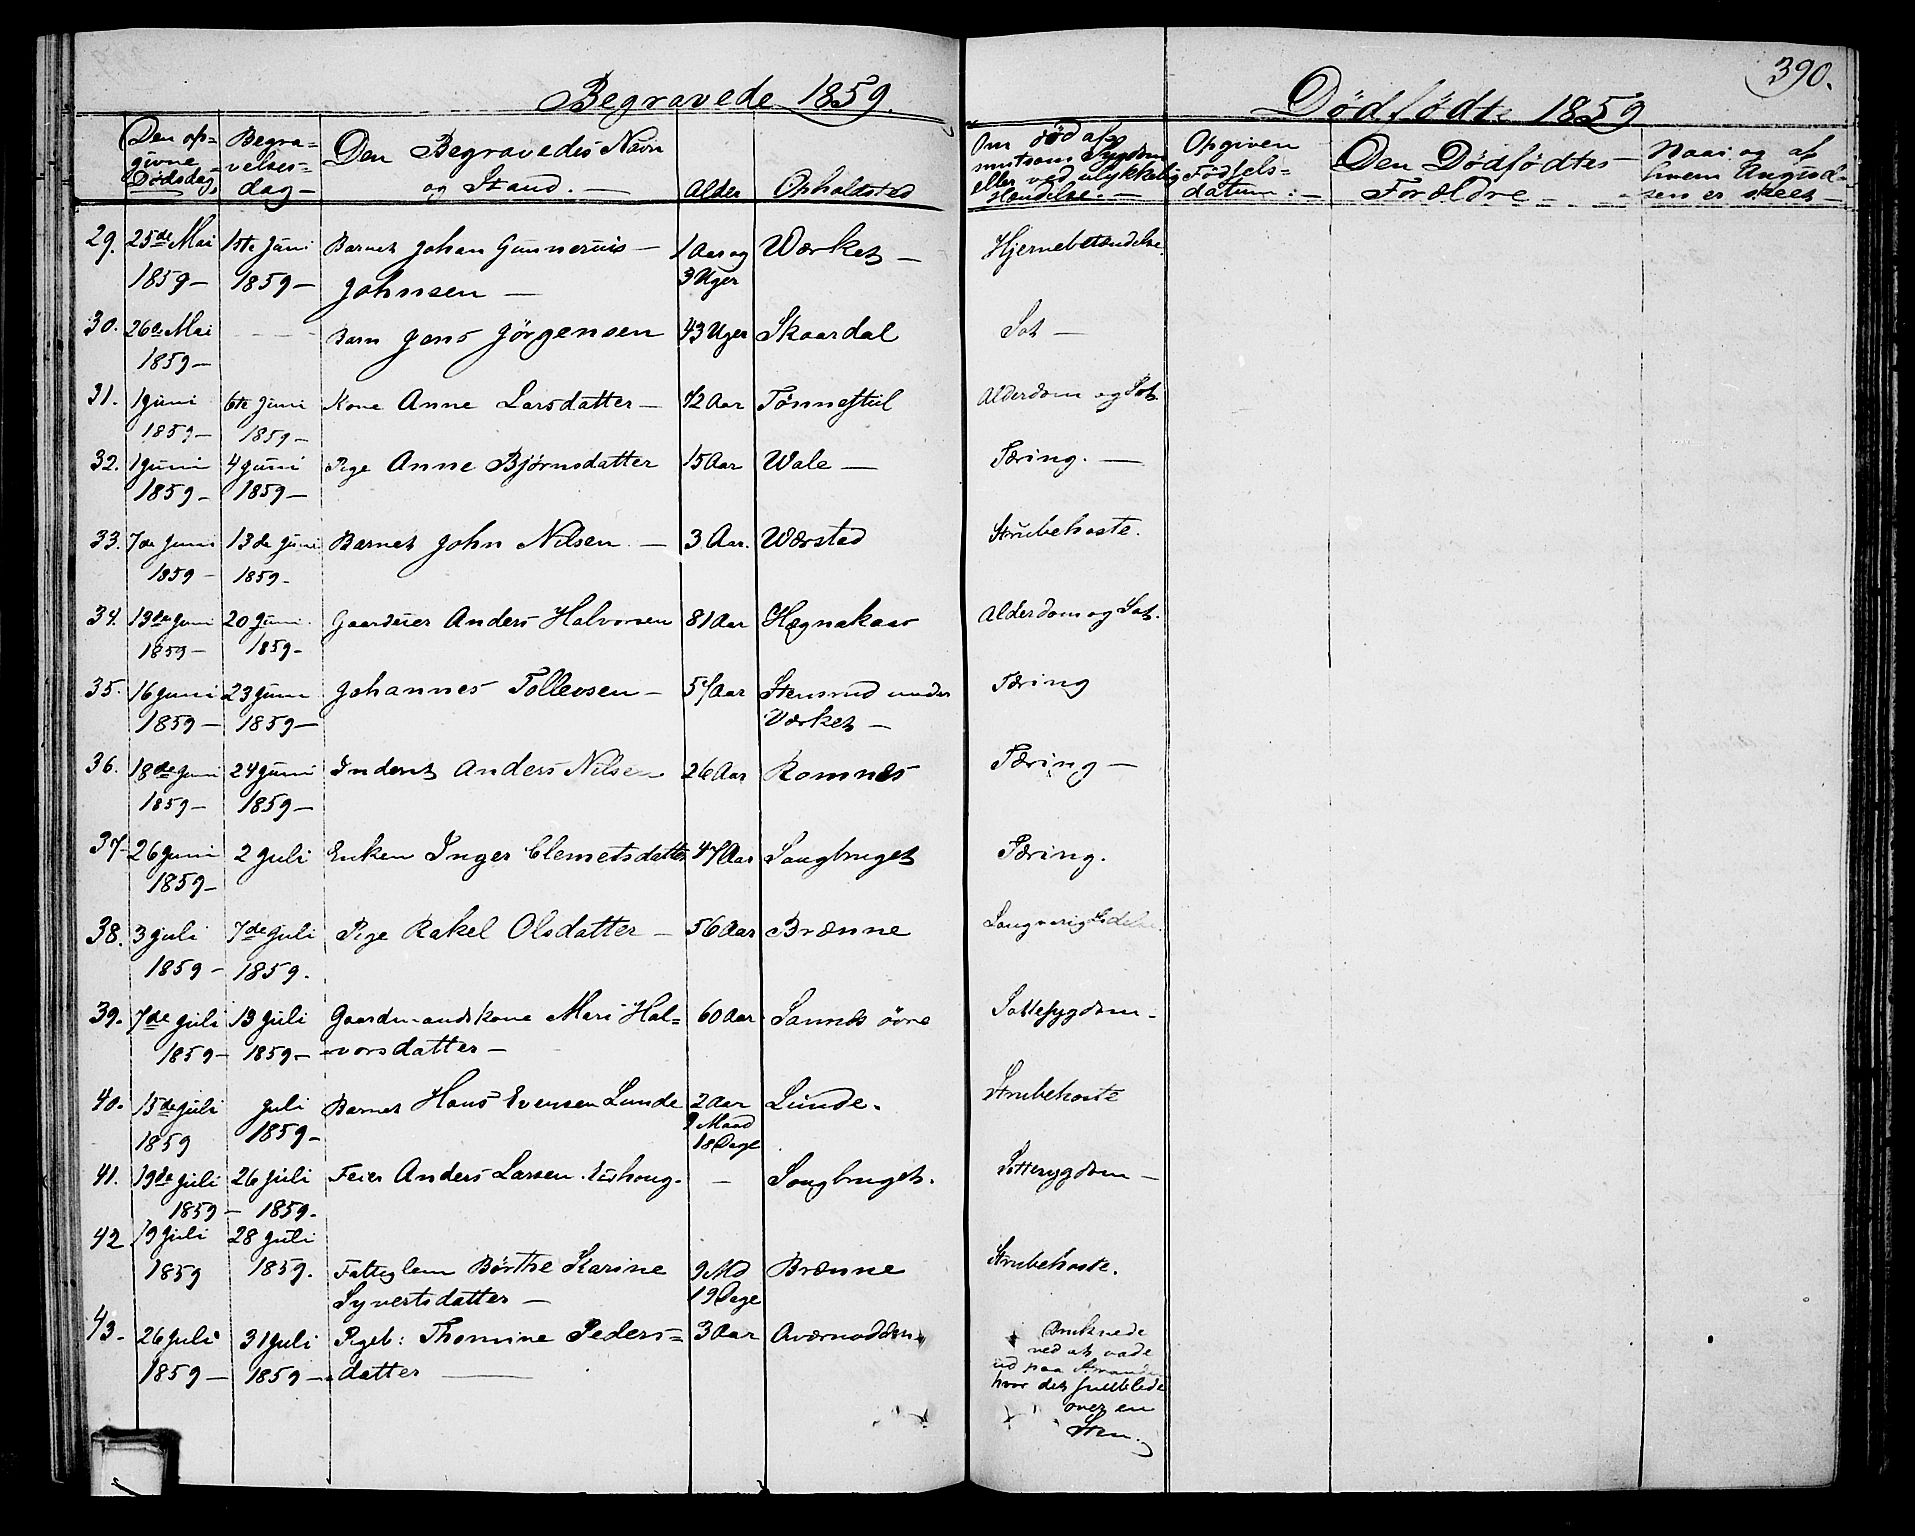 390.
Begravede 1859.
Dødfødte 1859
Den op-
givne
Dødsdag.
Begra-
velses-
dag-
Den Begravedes Navn
og Stand. —
Alder
Opholdsted
Om død af
smitsom Sygdom
eller ved ulykkelig
Hændelse. —
Opgiven
Fødsels-
datum: -
Den Dødfødtes
Forældre - - -
Naar og af
hvem Angivel-
sen er skeet -
29. 25de Mai 1ste Juni Barnet Johan Gunnerius — 1 Aar og Værket — Hjernebetændelse.
1859 — 1859 — Johnsen — 3 Uger
30. 26de Mai — — — Barn Jens Jörgensen 43 Uger Skaardal Sot —
1859 —
31. 1 Juni 6te Juni Kone Anne Larsdatter — Aar Tönnestul Alderdom og Sot
1859 — 1859 —
32. 1 Juni 4 Juni Pige Anne Bjørnsdatter 15 Aar Wale — Tæring. —
1859 — 1859 —
33. 7de Juni 13de Juni Barnet John Nilsen — 3 Aar. Værsted Strubehoste.
1859 — 1859 -
34. 13de Juni 20 Juni Anders Halvorsen 81 Aar Hægnakaas Alderdom og Sot.
1859 — 1859 —
35. 16 Juni 23 Juni Johannes Tollevsen — Aar Stensrud under Tæring
1859 — 1859 — Værket —
36. 18de Juni 24 Juni Inderst Anders Nilsen 26 Aar Romnæs Tæring —
1859 — 1859 —
37. 26 Juni 2 Juli Enken Inger Clemetsdatter 47 Aar Saugbruget Tæring.
1859 —
38. 3 Juli 7de Juli Pige Rakel Olsdatter — 56 Aar Brænne Langvarig Lidelse.
1859 — 1859.
39. 7de Juli 13 Juli Gaardmandskone Mari Hal= 60 Aar Sannes övre Sottesygdom —
1859 — 1859 — vorsdatter —
40. 15de Juli Juli Barnet Hans Evensen Lunde 2 Aar Lunde. Strubehoste
1859 1859 — 9 Maad
18 Dage
41. 19de Juli 26 Juli Feier Anders Larsen — Saugbruget. Sottesygdom —
1859 — 1859.
42 19 Juli 28 Juli
1859 1859. Fattiglem Børthe Karine 9 Md Brænne Strubehoste.
Syvertsdatter — 19 Dage
43. 26 Juli 31 Juli Pigeb: Thomine Peders= 3 Aar Aværnodden Druknede
1859 — 1859 — datter — ved at vade
ud paa Strande
hvor det
over en
Sten.